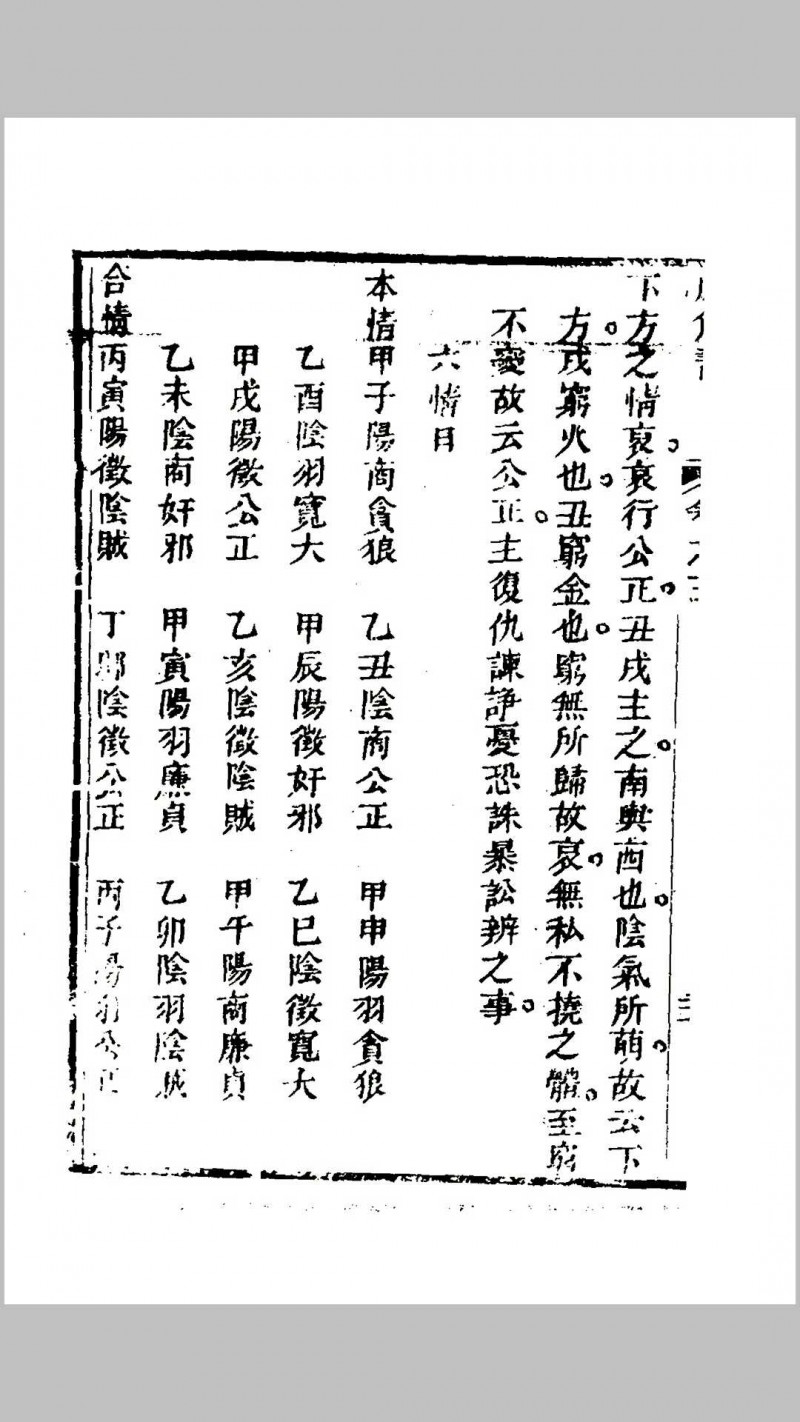 下方之情哀。哀行公正。丑戌主之。南與西也。陰氣所萌。故云下
方。戌窮火也。丑窮金也。窮無所歸故哀。無私不撓之體。至窮
不變故云公正。主復仇諫諍憂恐誅暴訟辨之事。
六情目
本情甲子陽商貪狼 乙丑陰商公正 甲申陽羽貪狼
乙酉陰羽寬大 甲辰陽徵奸邪 乙巳陰徵寬大
甲戌陽徵公正 乙亥陰徵陰賊 甲午陽商廉貞
乙未陰商奸邪 甲寅陽羽廉貞 乙卯陰羽陰賊
合情丙寅陽徵陰賊 丁卯陰徵公正 丙子陽羽公正